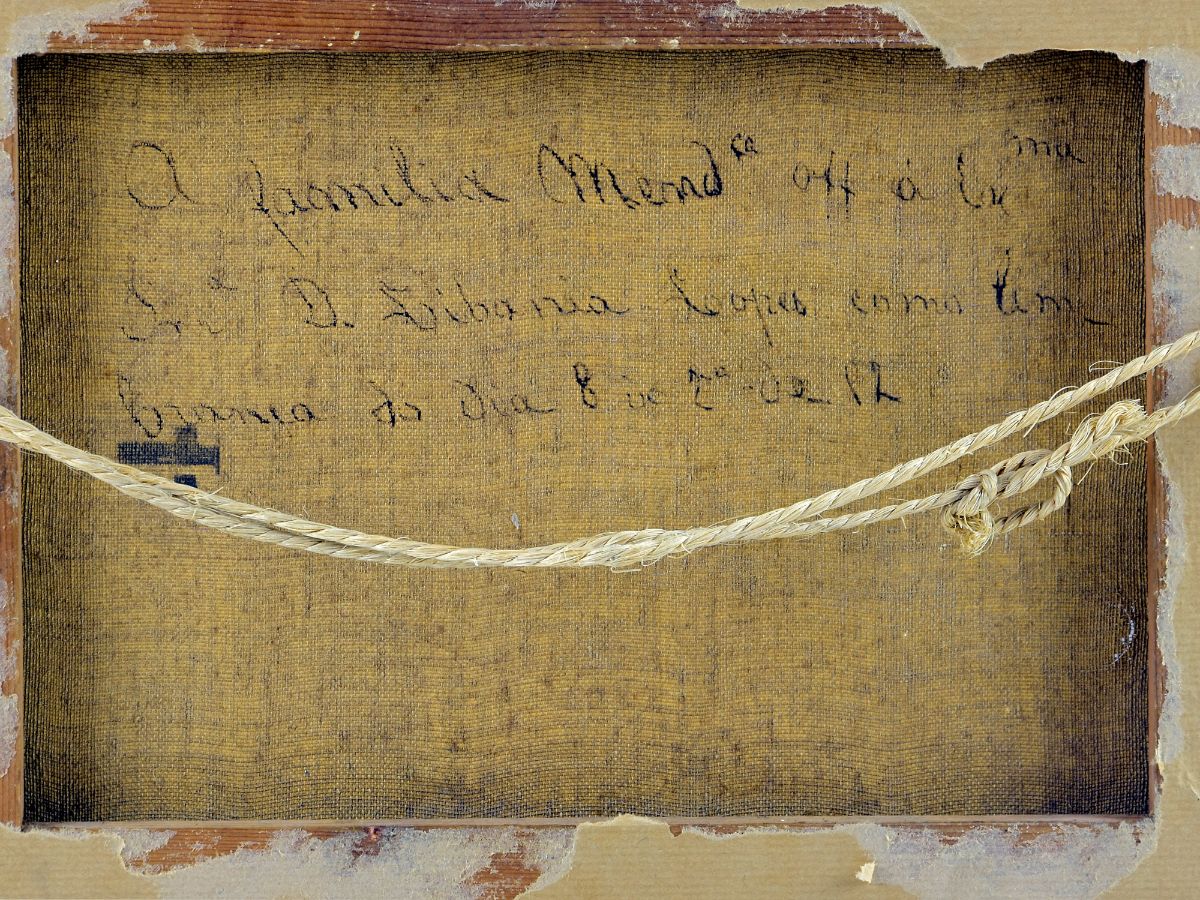 A familia Mend.ça off á Ex.ma
Sr.ª D. Libania Lopes como Lem_
brança do dia 8 de 7º de 12